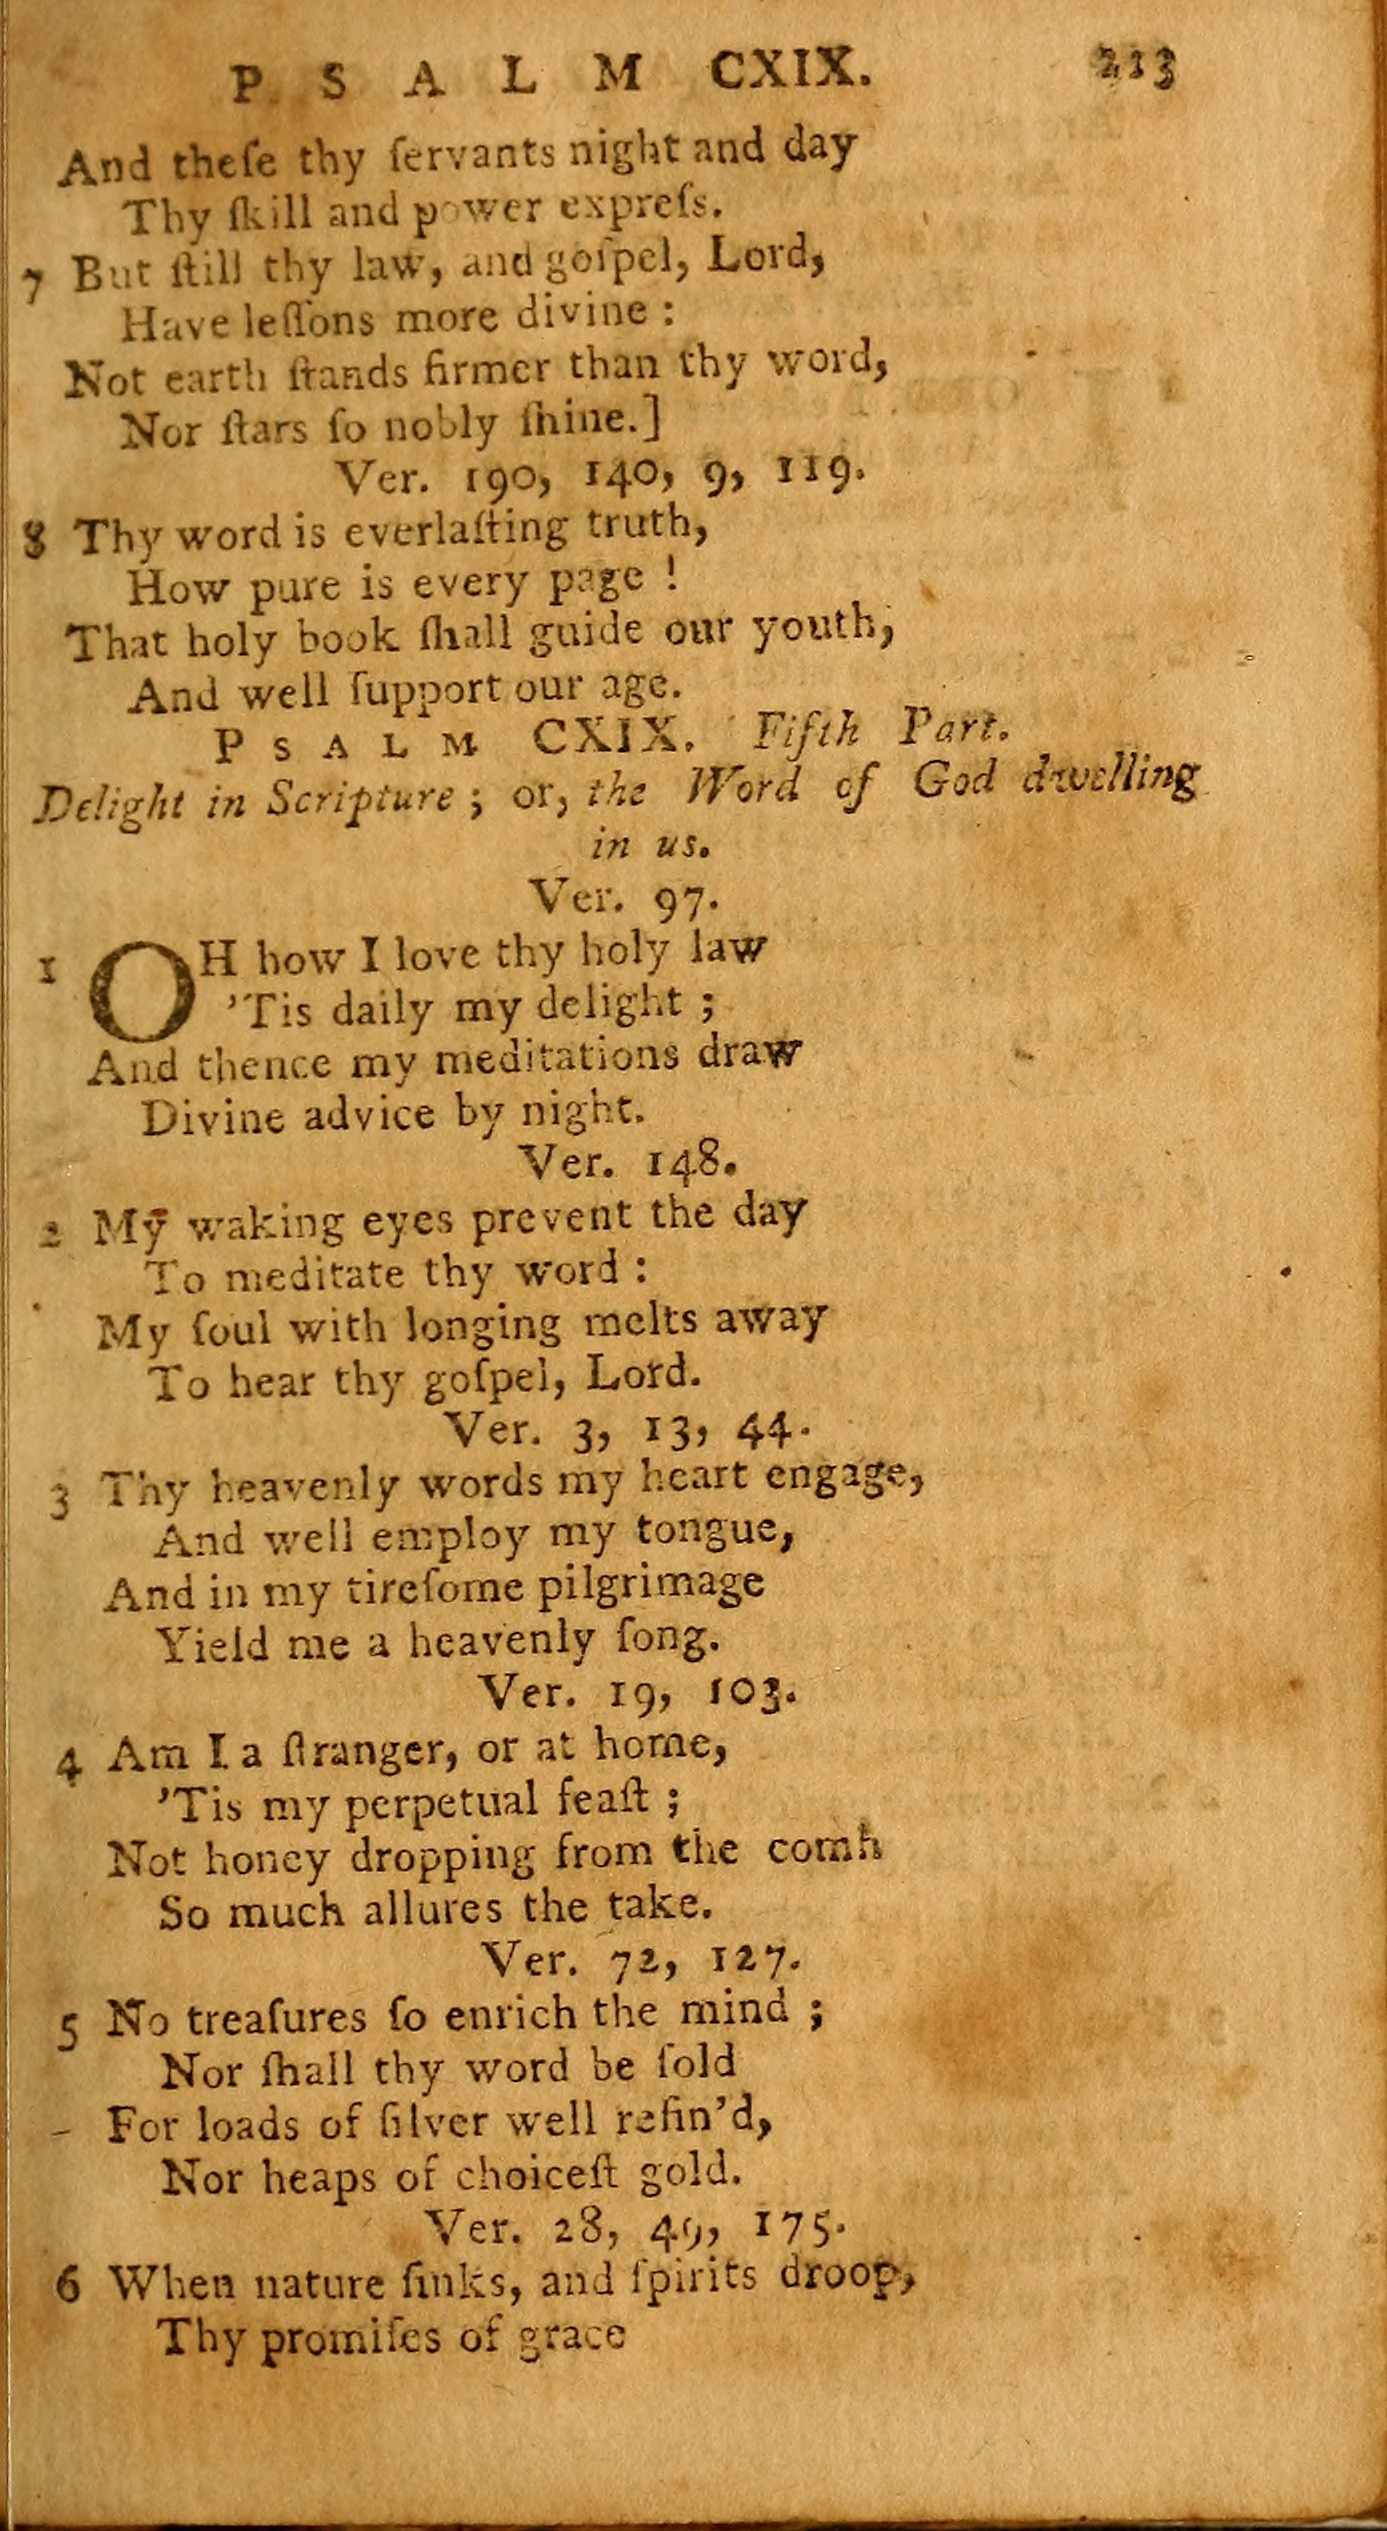 PSALM CXIX. 213
And theſe thy ſervants night and day
Thy ſkill and power expreſs.
7 But ſtill thy law, and goſpel, Lord,
Have leſſons more divine :
Not earth ſtands firmer than thy word,
Nor ſtars ſo nobly ſhine.]
Ver. 190, 140, 9, 119.
8 Thy word is everlaſting truth,
How pure is every page !
That holy book ſhall guide our youth,
And well ſupport our age.
PSALM CXIX. Fifth Part.
Delight in Scripture ; or, the Word of God dwelling
in us.
Ver. 97.
1 OH how I love thy holy law
’Tis daily my delight ;
And thence my meditations draw
Divine advice by night.
Ver. 148.
2 My waking eyes prevent the day
To meditate thy word :
My ſoul with longing melts away
To hear thy goſpel, Lord.
Ver. 3, 13, 44.
3 Thy heavenly words my heart engage,
And well employ my tongue,
And in my tireſome pilgrimage
Yield me a heavenly ſong.
Ver. 19, 103.
4 Am I a ſtranger, or at home,
’Tis my perpetual feaſt ;
Not honey dropping from the comb
So much allures the take.
Ver. 72, 127.
5 No treaſures ſo enrich the mind ;
Nor ſhall thy word be ſold
For loads of ſilver well refin’d,
Nor heaps of choiceſt gold.
Ver. 28, 49, 175.
6 When nature ſinks, and ſpirits droop,
Thy promiſes of grace